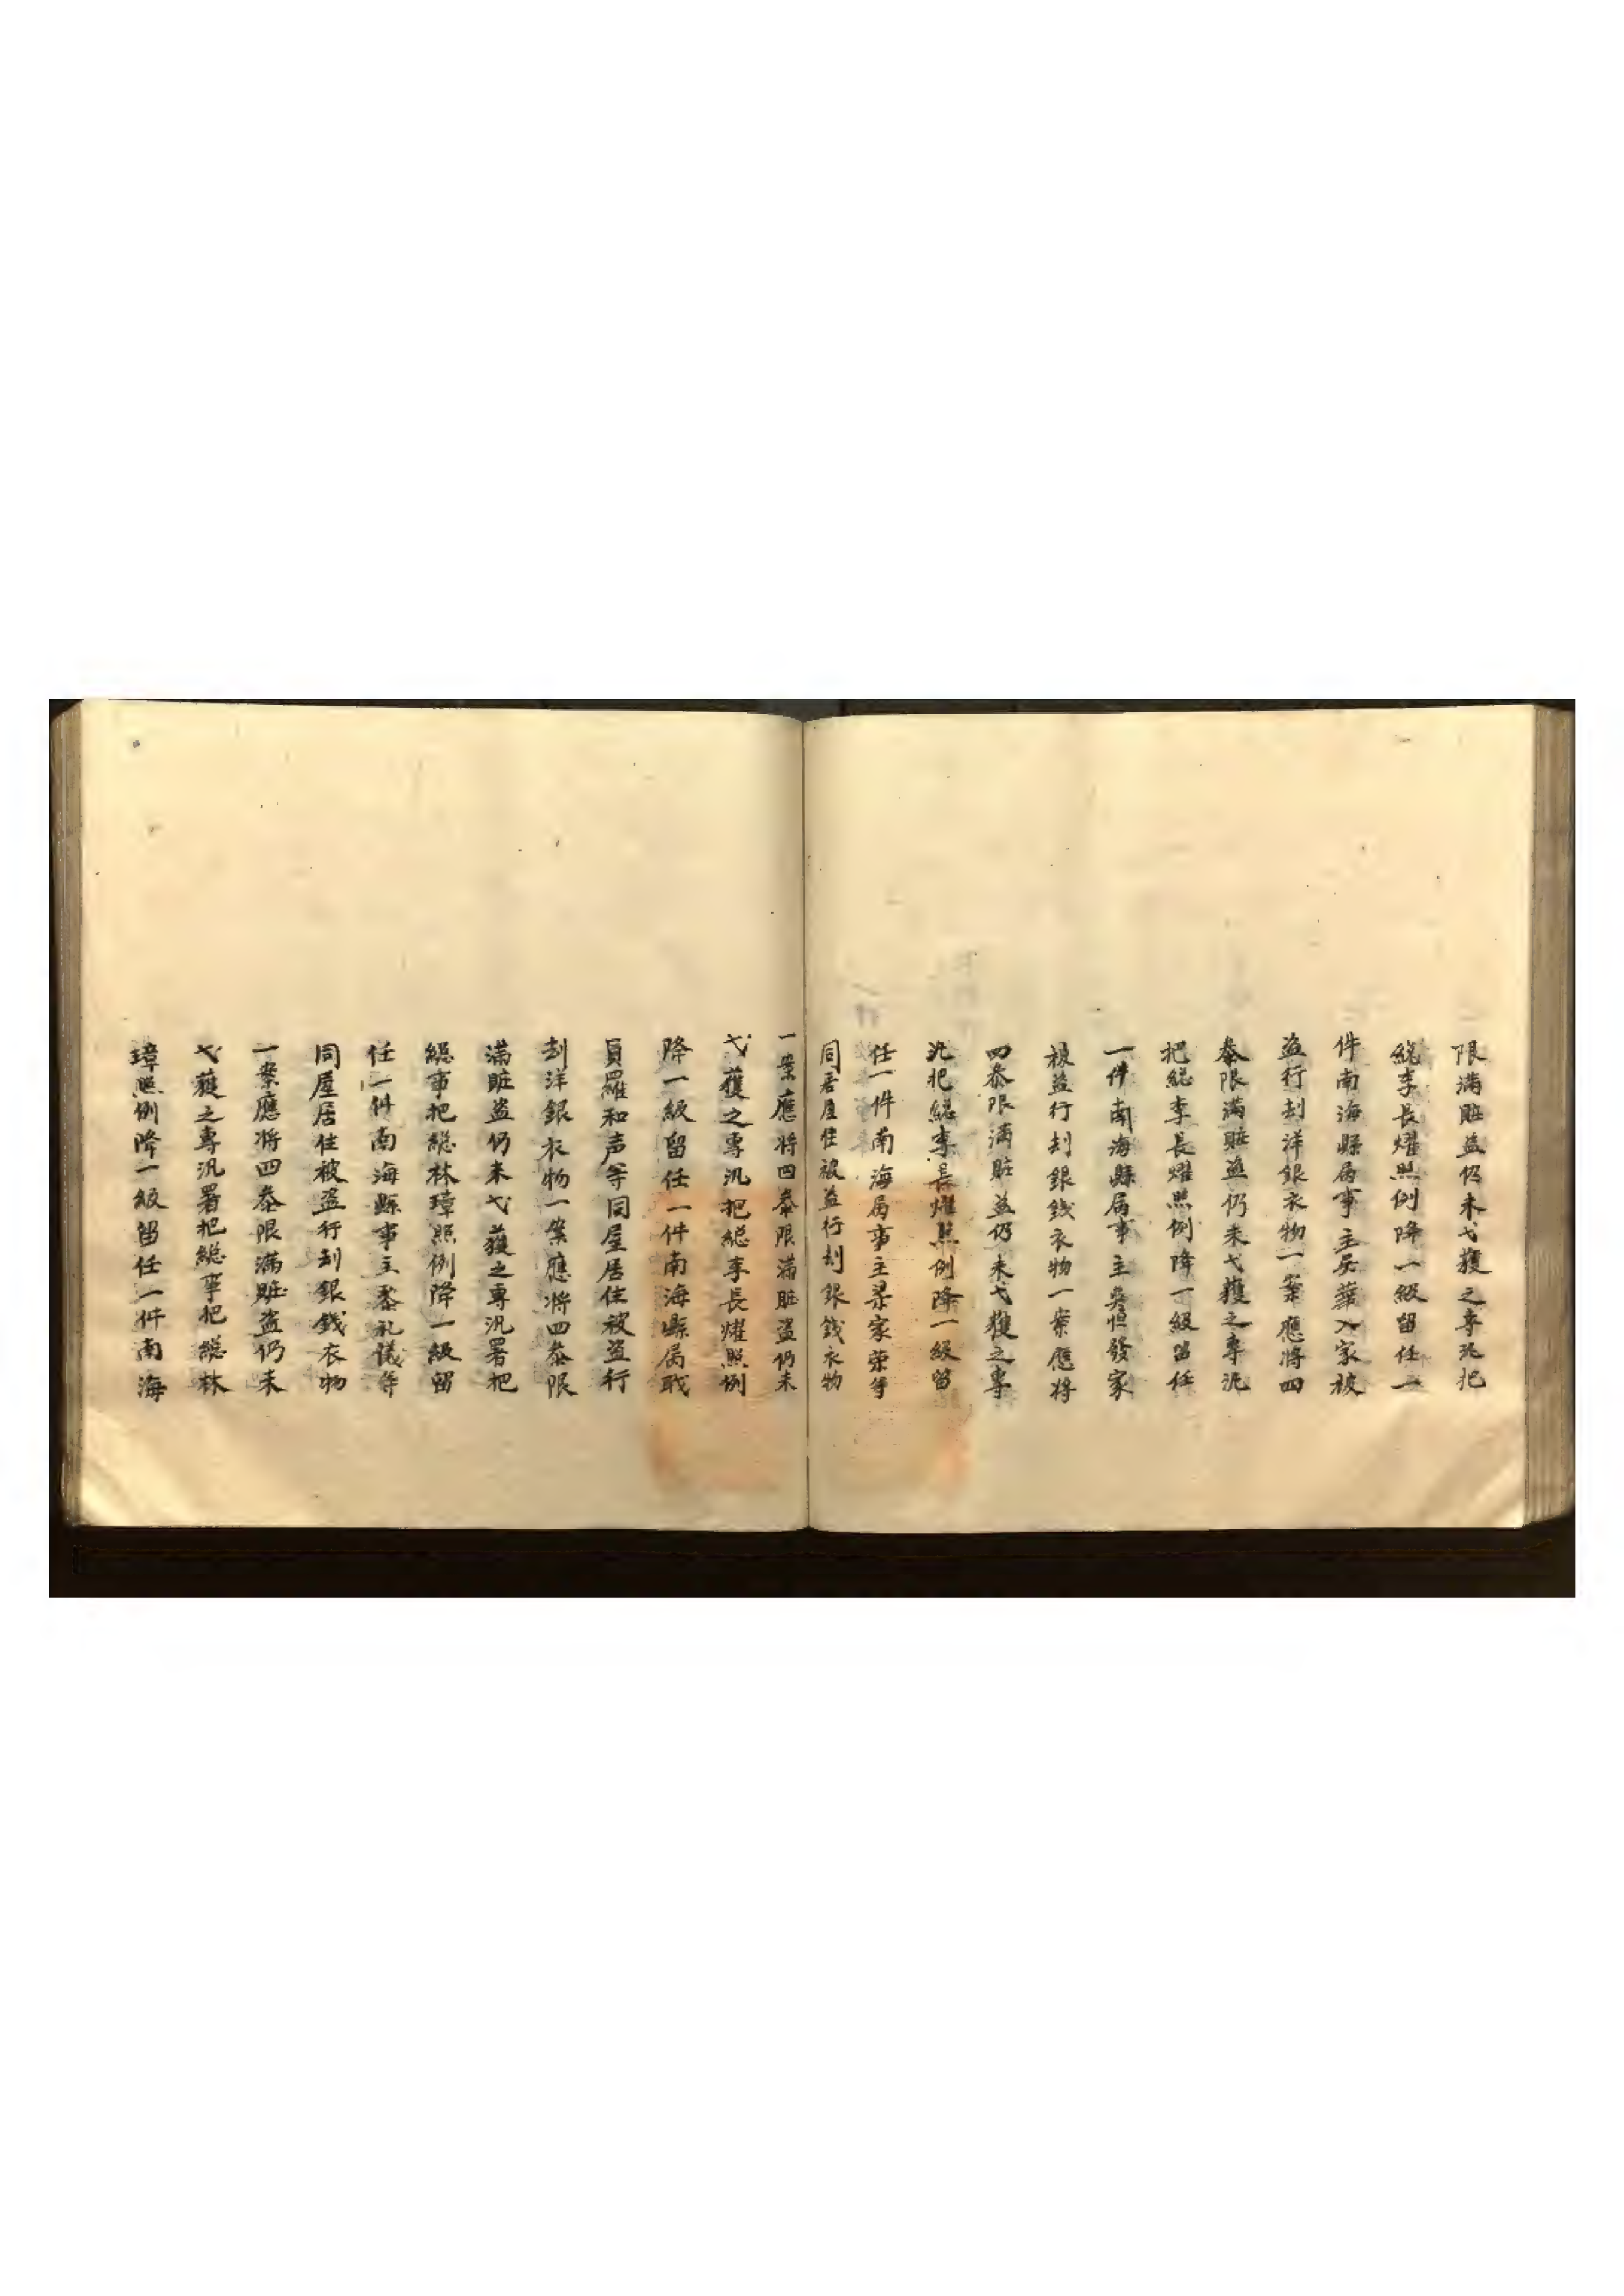 限滿賍盗仍未弋獲之專汛把
總李長燿照例降一級留任一
件南海縣属事主吴華入家被
盗行刦洋銀衣物一案應將四
叅限滿賍盗仍未弋獲之專汛
把總李長燿照例降一級留任
一件南海縣属事主吳恒發家
被盗行刦銀銭衣物一案應將
四叅限滿賍盗仍未弋獲之專
汛把總李長燿照例降一級留
任一件南海属事主梁家荣等
同居屋住被盗行刦銀銭衣物
一案應將四叅限滿賍盗仍未
弋獲之專汛把總李長燿照例
降一級留任一件南海縣属職
員羅和声等同屋居住被盗行
刦洋銀衣物一案應將四叅限
滿賍盗仍未弋獲之專汛署把
總事把總林璋照例降一級留
任一件南海縣事主黎礼儀等
同屋居住被盗行刦銀錢衣物
一案應將四叅限滿賍盗仍未
弋獲之專汛署把總事把總林
璋照例降一級留任一件南海